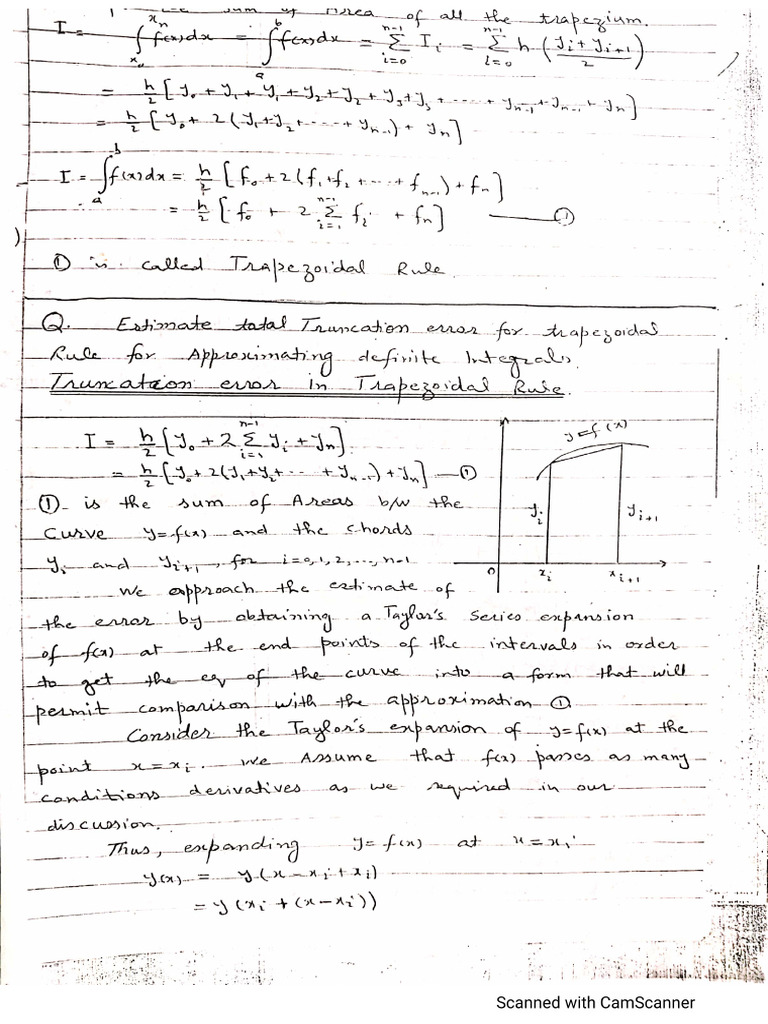 sum of Area of all the trapezium.
I = ∫_{x₀}^{xₙ} f(x)dx = ∫_a^b f(x)dx = Σ_{i=0}^{n-1} I_i = Σ_{i=0}^{n-1} h ( (y_i + y_{i+1}) / 2 )
= h/2 [y₀ + y₁ + y₁ + y₂ + y₂ + y₃ + y₃ + ..... + y_{n-1} + y_{n-1} + yₙ]
= h/2 [y₀ + 2(y₁ + y₂ + ..... + y_{n-1}) + yₙ]
I = ∫_a^b f(x)dx = h/2 [f₀ + 2(f₁ + f₂ + ... + f_{n-1}) + fₙ]
= h/2 [f₀ + 2 Σ_{i=1}^{n-1} f_i + fₙ] ——— ①
① is called Trapezoidal Rule
Q. Estimate total Truncation error for trapezoidal
Rule for Approximating definite Integrals.
Truncation error in Trapezoidal Rule.
I = h/2 [y₀ + 2 Σ_{i=1}^{n-1} y_i + yₙ]
= h/2 [y₀ + 2(y₁ + y₂ + ... + y_{n-1}) + yₙ] — ①
① is the sum of Areas b/w the
Curve y=f(x) and the chords
y_i and y_{i+1}, for i=0,1,2,...,n-1
y=f(x)
y_i
y_{i+1}
0
x_i
x_{i+1}
We approach the estimate of
the error by obtaining a Taylor's Series expansion
of f(x) at the end points of the intervals in order
to get the eq of the curve into a form that will
permit comparison with the approximation ①
Consider the Taylor's expansion of y=f(x) at the
point x=x_i. We Assume that f(x) passes as many
conditions derivatives as we required in our
discussion.
Thus, expanding y= f(x) at x=x_i
y(x) = y(x-x_i+x_i)
= y(x_i + (x-x_i))
Scanned with CamScanner